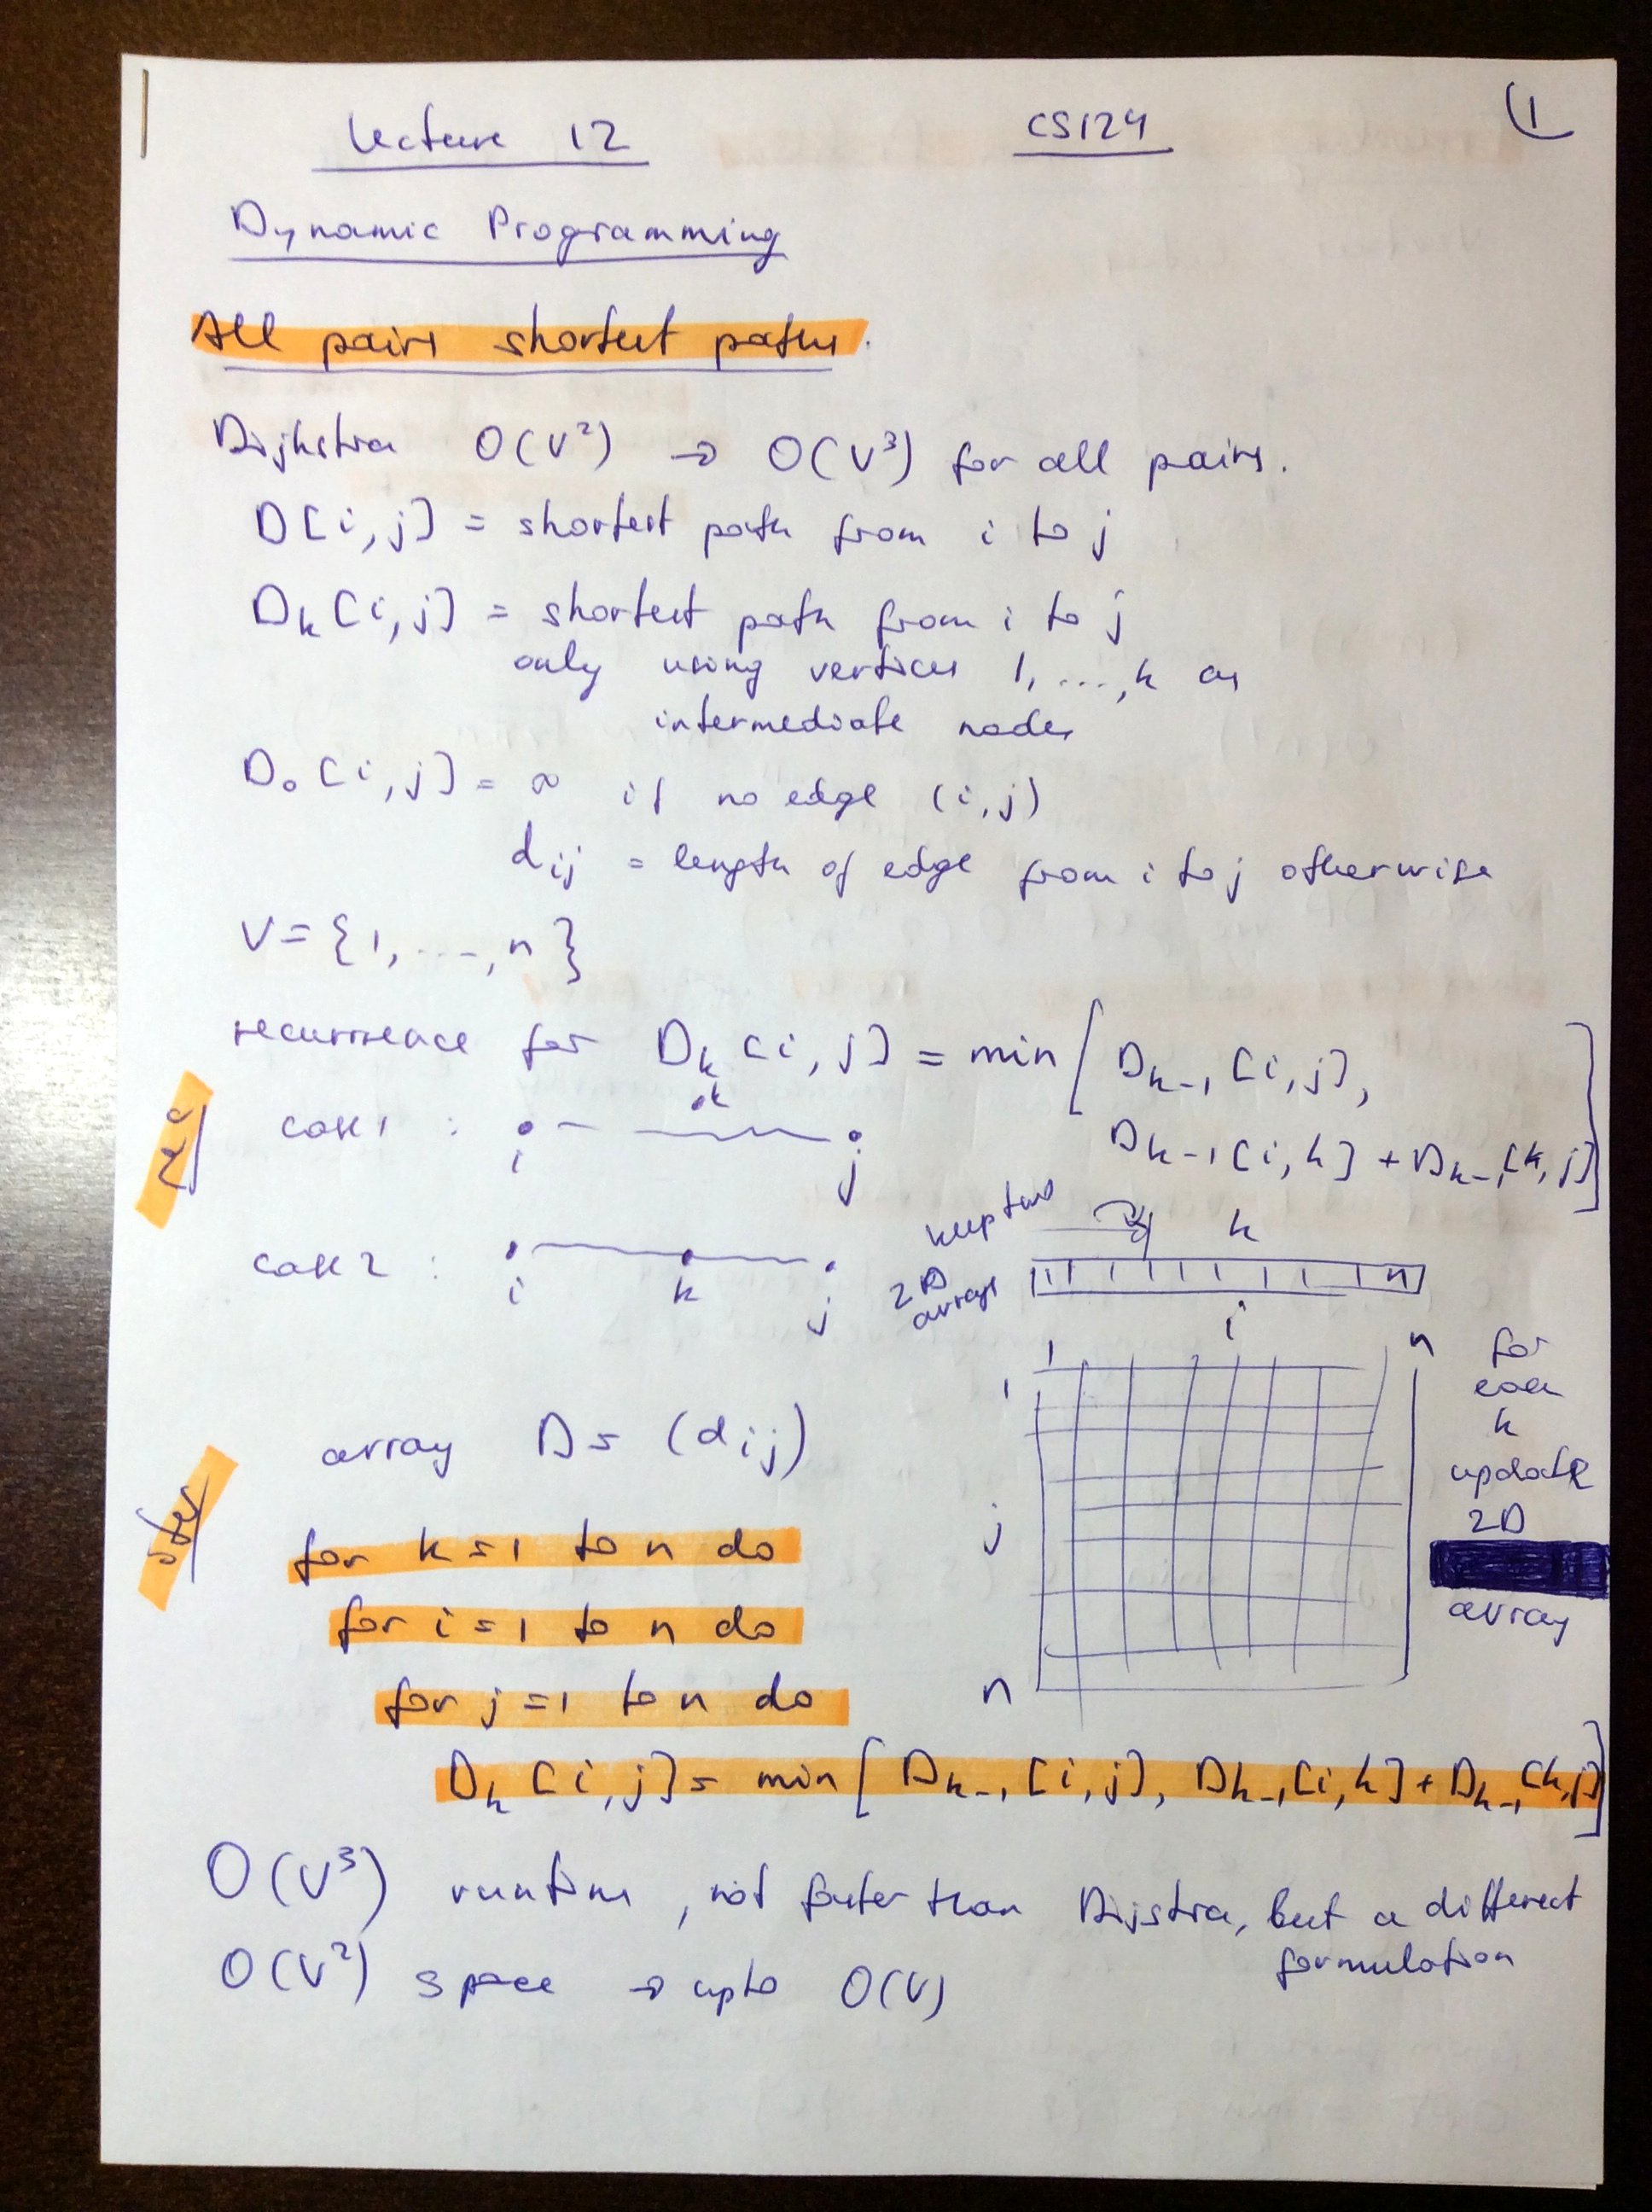 Lecture 12 CS124 1
Dynamic Programming
All pairs shortest paths.
Dijkstra O(V²) → O(V³) for all pairs.
D[i,j] = shortest path from i to j
Dk[i,j] = shortest path from i to j
only using vertices 1,...,k as
intermediate nodes
D₀[i,j] = ∞ if no edge (i,j)
dij = length of edge from i to j otherwise
V = {1,...,n}
recurrence for Dk[i,j] = min[Dk-1[i,j],
Dk-1[i,k] + Dk-1[k,j]]
rec
case 1 : i k j
case 2 : i k j
keep two
2D
arrays
k
n
i
1 n
1
j
n
for
each
k
update
2D
array
array D = (dij)
for k=1 to n do
for i=1 to n do
for j=1 to n do
Dk[i,j] = min[Dk-1[i,j], Dk-1[i,k] + Dk-1[k,j]]
O(V³) runtime, not faster than Dijstra, but a different
formulation
O(V²) space → upto O(V)